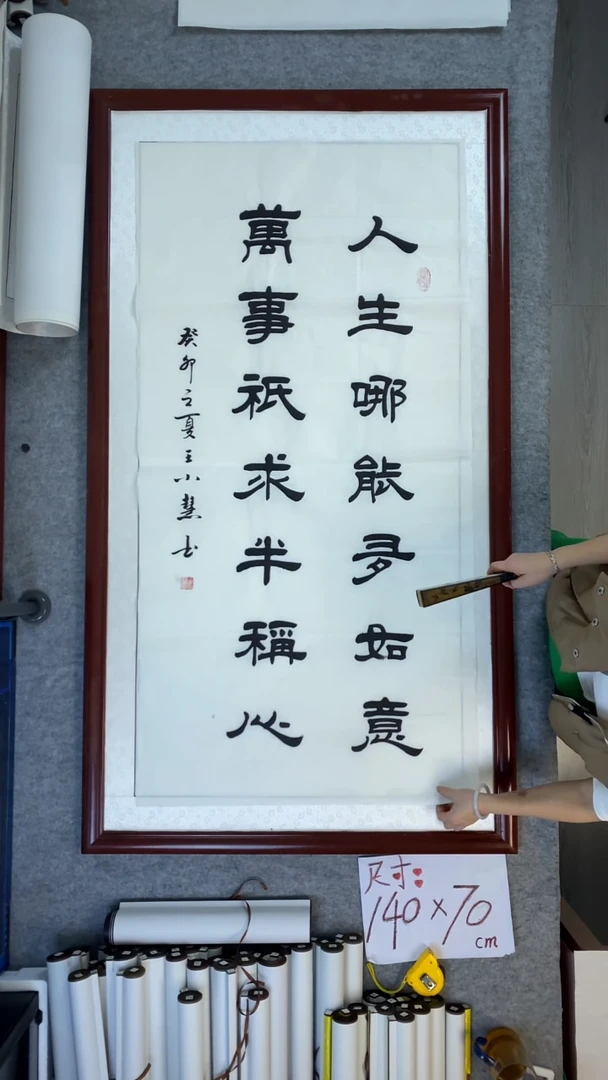 人生哪能多如意
萬事祇求半稱心
癸卯立夏王小慧书
尺寸:
140×70
cm